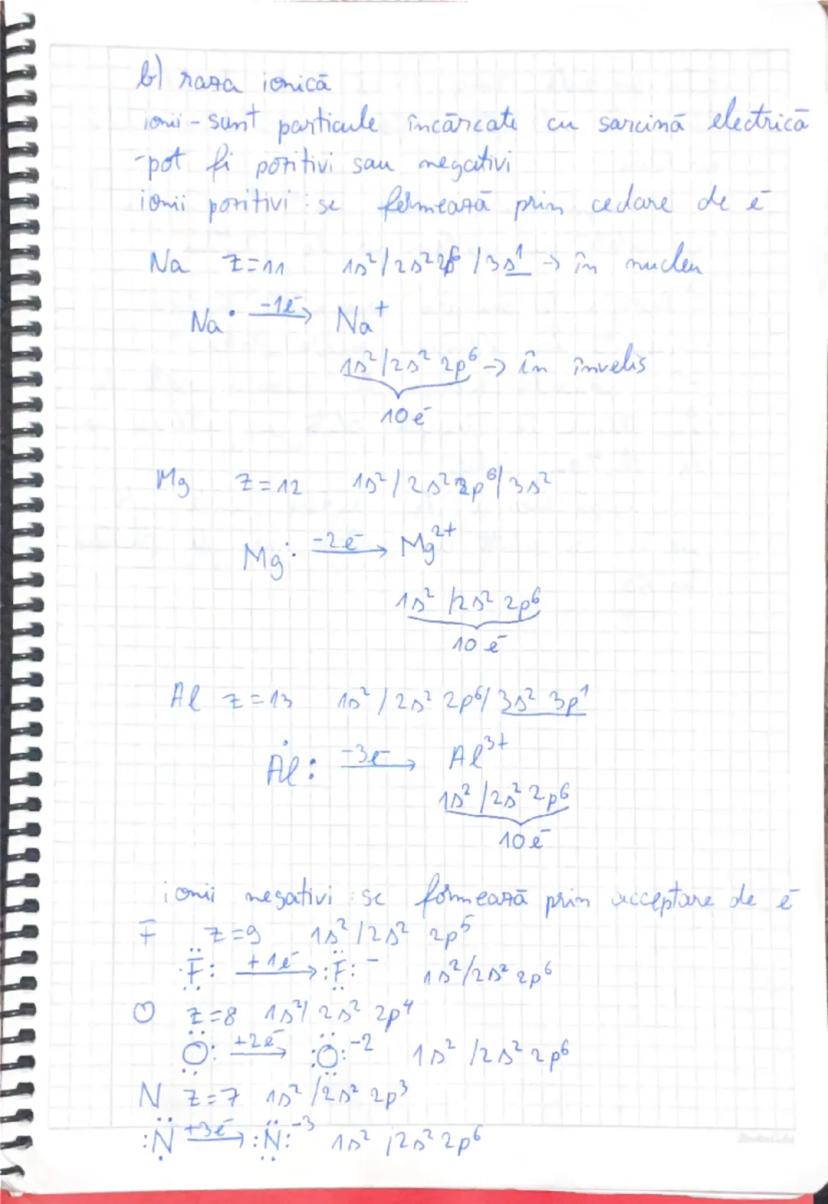 b) raza ionică
ionii - sunt particule încărcate cu sarcină electrică
-pot fi pozitivi sau negativi
ionii pozitivi: se formează prin cedare de e⁻
Na Z=11 1s²/2s²2p⁶/3s¹ → în nucleu
Na· -1e⁻→ Na⁺
1s²/2s² 2p⁶ → în învelis
10 e⁻
Mg Z=12 1s²/2s²2p⁶/3s²
Mg: -2e⁻→ Mg²⁺
1s²/2s² 2p⁶
10 e⁻
Al Z=13 1s²/2s² 2p⁶/3s² 3p¹
Al: -3e⁻→ Al³⁺
1s²/2s² 2p⁶
10 e⁻
ionii negativi se formează prin acceptare de e⁻
F Z=9 1s²/2s² 2p⁵
·F: +1e⁻→ :F:⁻ 1s²/2s² 2p⁶
O Z=8 1s²/2s² 2p⁴
O: +2e⁻→ :O:⁻² 1s²/2s² 2p⁶
N Z=7 1s²/2s² 2p³
:N +3e⁻→ :N:⁻³ 1s²/2s² 2p⁶